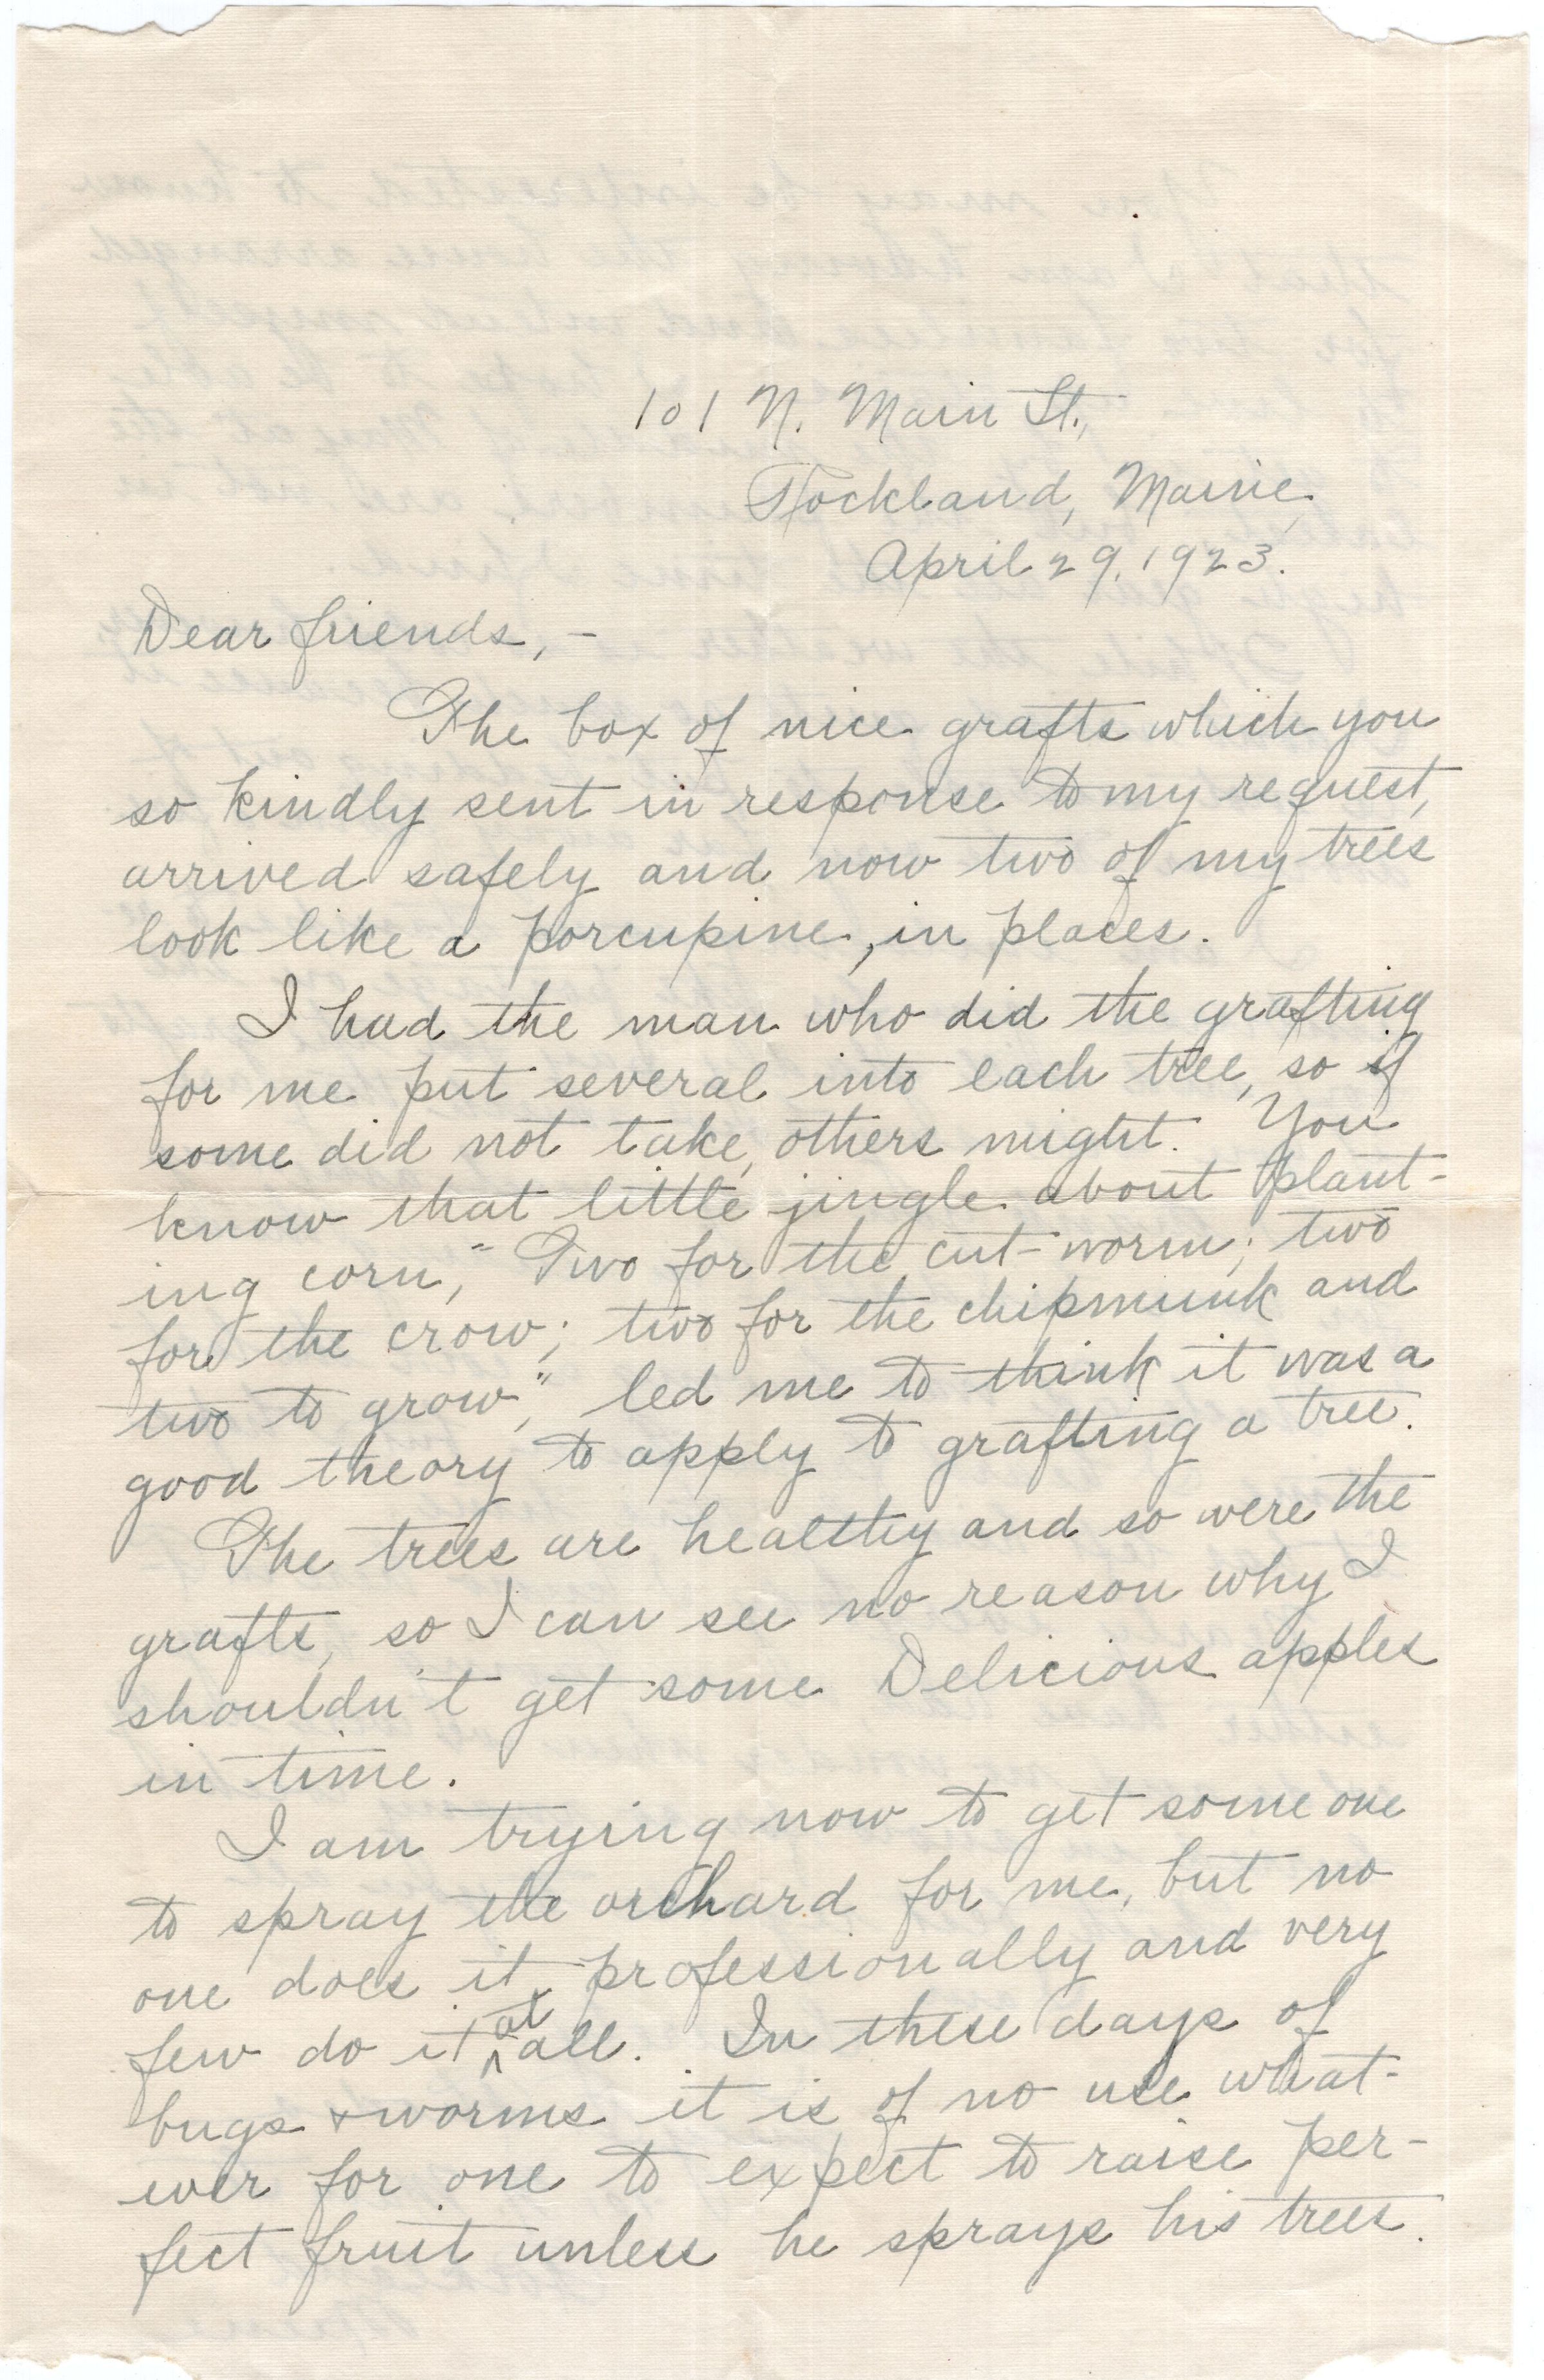 101 N. Main St.,
Rockland, Maine,
April 29, 1923.
Dear friends, -
The box of nice grafts which you
so kindly sent in response to my request,
arrived safely and now two of my trees
look like a porcupine, in places.
I had the man who did the grafting
for me put several into each tree, so if
some did not take, others might. You
know that little jingle about plant-
ing corn, "Two for the cut-worm; two
for the crow; two for the chipmunk and
two to grow," led me to think it was a
good theory to apply to grafting a tree.
The trees are healthy and so were the
grafts, so I can see no reason why I
shouldn't get some Delicious apples
in time.
I am trying now to get some one
to spray the orchard for me, but no
one does it professionally and very
few do it at all. In these days of
bugs & worms it is of no use what-
ever for one to expect to raise per-
fect fruit unless he sprays his trees.